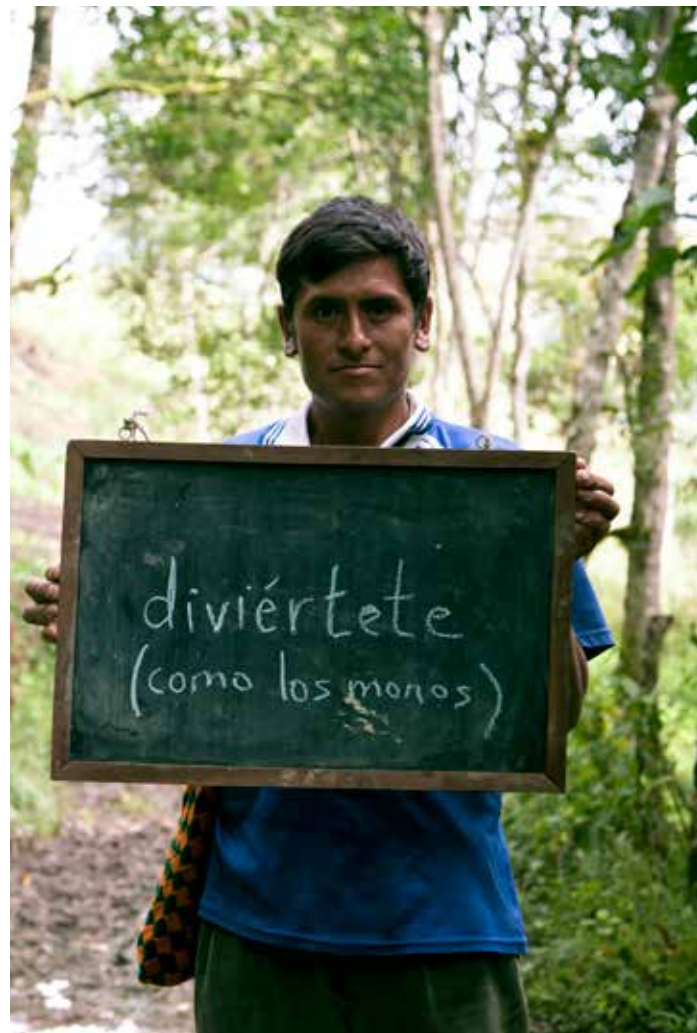 diviértete
(como los monos)